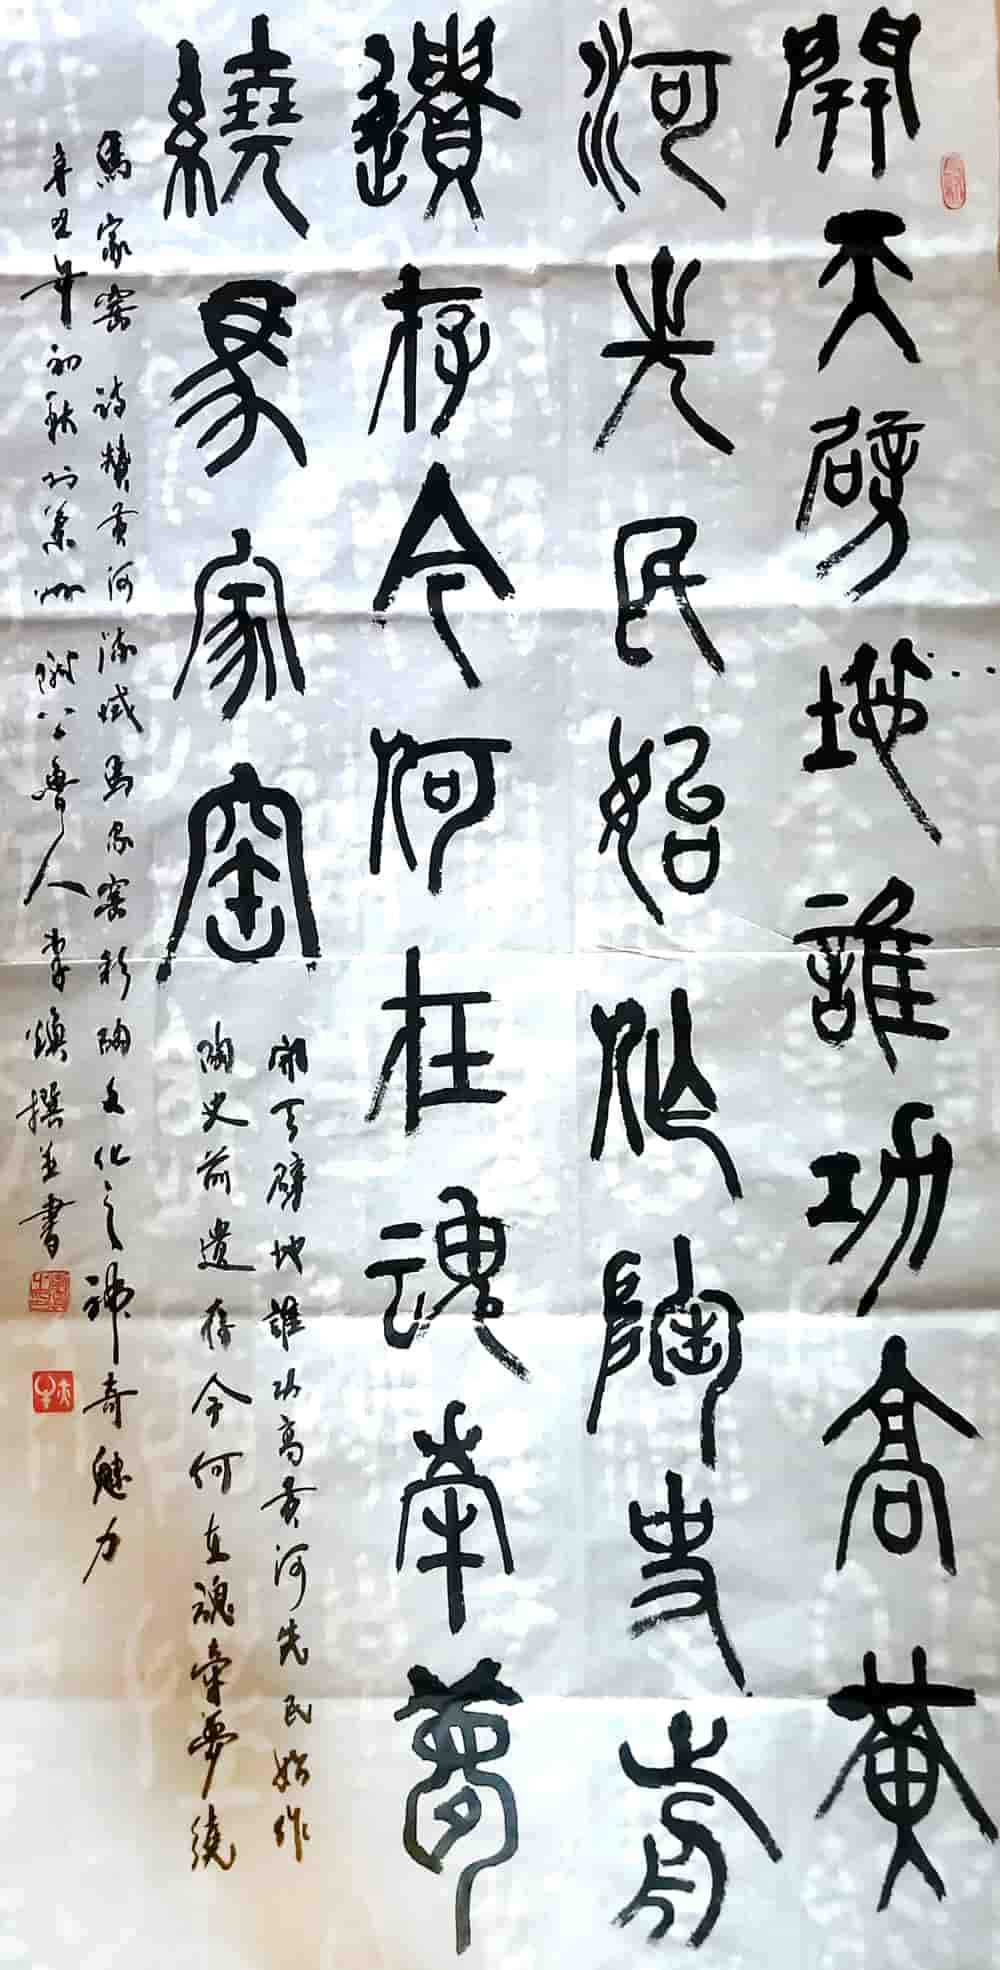 開天劈地誰功高黄
河先民始作陶史前
遺存今何在魂牽夢
繞馬家窑
開天劈地誰功高黄河先民始作
陶史前遺存今何在魂牽夢繞
馬家窑 詩贊黄河流域馬家窑彩陶文化之神奇魅力
辛丑年初秋於蘭州 魯人李煥撰並書